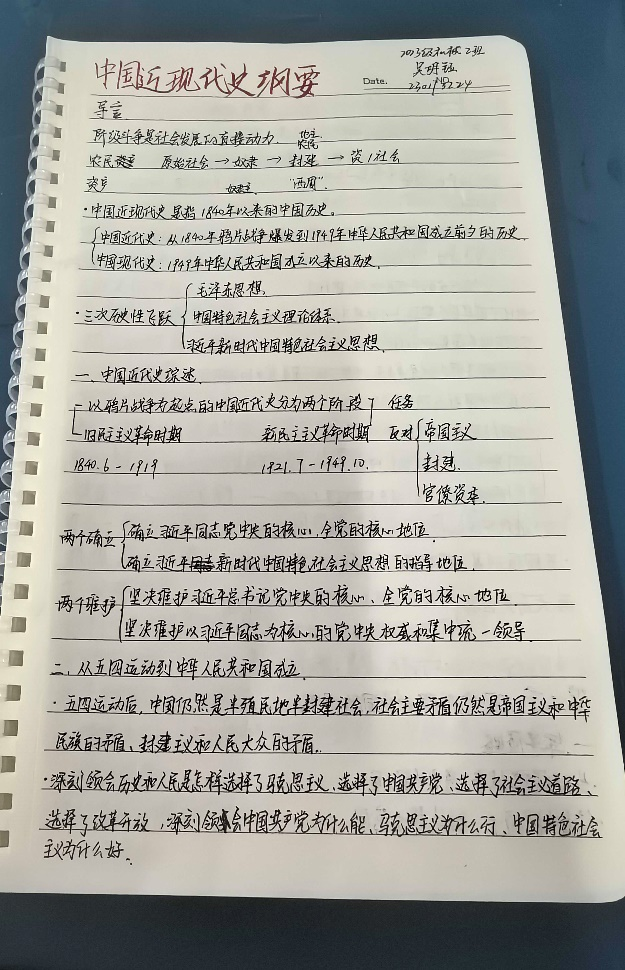 中国近现代史纲要
2023级机械2班
Date.
导言
阶级斗争是社会发展的直接动力. 地主
农民
农民 原始社会 → 奴隶 → 封建 → 资/社会
资产 奴隶主 "西周".
·中国近现代史是指1840年以来的中国历史.
中国近代史:从1840年鸦片战争爆发到1949年中华人民共和国成立前夕的历史.
中国现代史:1949年中华人民共和国成立以来的历史.
毛泽东思想.
·三次历史性飞跃 中国特色社会主义理论体系.
习近平新时代中国特色社会主义思想.
一、中国近代史综述.
以鸦片战争为起点的中国近代史分为两个阶段 任务
旧民主主义革命时期 新民主主义革命时期 反对 帝国主义
1840.6-1919 1921.7-1949.10. 封建.
官僚资本.
两个确立 确立习近平同志党中央的核心,全党的核心地位.
确立习近平新时代中国特色社会主义思想的指导地位.
两个维护 坚决维护习近平总书记党中央的核心、全党的核心地位.
坚决维护以习近平同志为核心的党中央权威和集中统一领导.
二、从五四运动到中华人民共和国成立.
·五四运动后,中国仍然是半殖民地半封建社会,社会主要矛盾仍然是帝国主义和中华
民族的矛盾、封建主义和人民大众的矛盾.
·深刻领会历史和人民是怎样选择了马克思主义、选择了中国共产党、选择了社会主义道路、
选择了改革开放,深刻领会中国共产党为什么能、马克思主义为什么行、中国特色社会
主义为什么好.